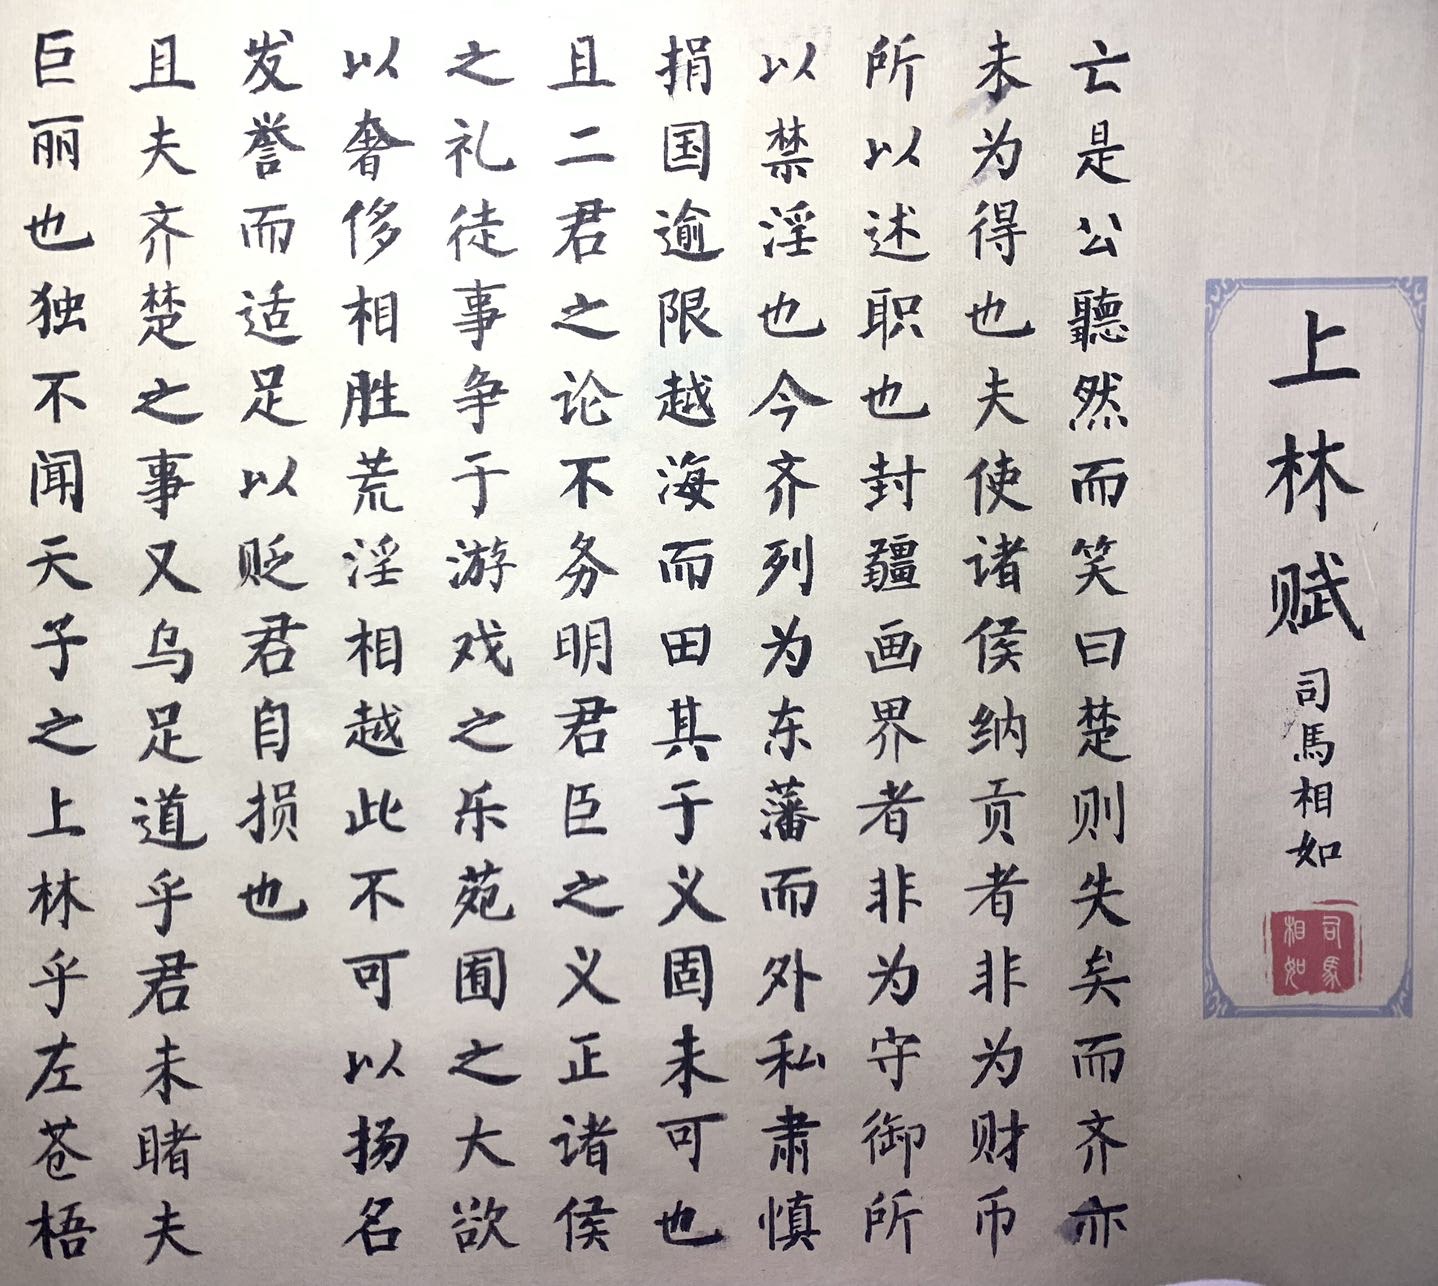 上林赋 司馬相如
司馬相如
亡是公聽然而笑曰楚则失矣而齐亦
未为得也夫使诸侯纳贡者非为财币
所以述职也封疆画界者非为守御所
以禁淫也今齐列为东藩而外私肃慎
捐国逾限越海而田其于义固未可也
且二君之论不务明君臣之义正诸侯
之礼徒事争于游戏之乐苑囿之大欲
以奢侈相胜荒淫相越此不可以扬名
发誉而适足以贬君自损也
且夫齐楚之事又乌足道乎君未睹夫
巨丽也独不闻天子之上林乎左苍梧